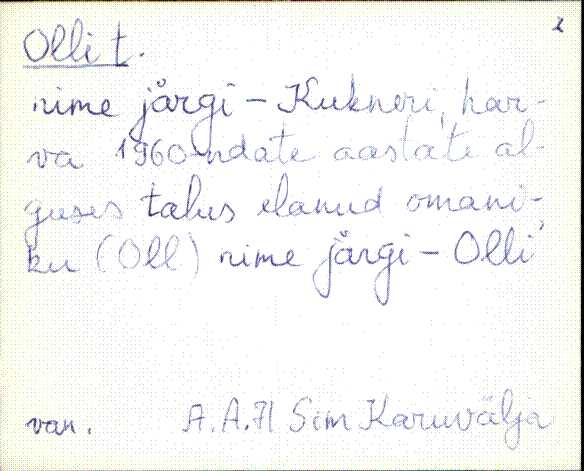 2
Olli t.
nime järgi - Kukneri, har-
va 1960-ndate aastate al-
guses talus elanud omani-
ku (Oll) nime järgi - Olli
van. A. A. 71 Sim Karuvälja